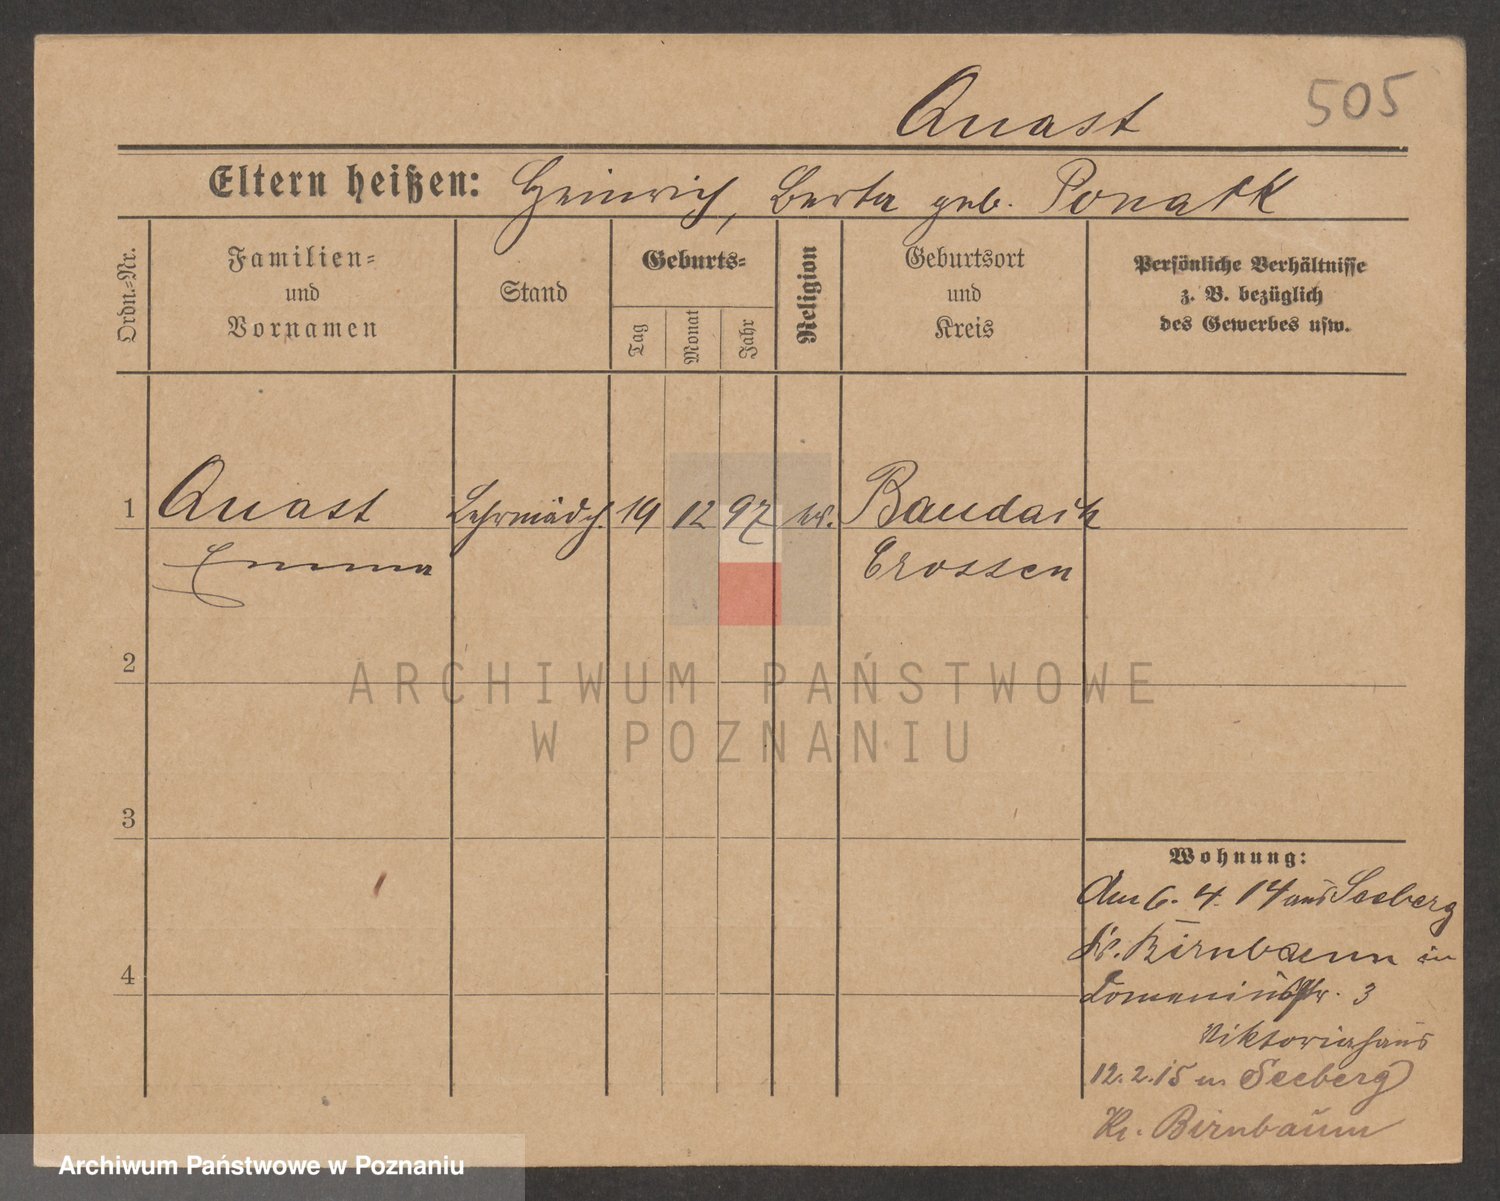 Quast
505
Eltern heißen: Heinrich, Berta geb.
Ordn.=Nr.
Familien=
und
Vornamen
Stand
Geburts=
Tag
Monat
Jahr
Religion
Geburtsort
und
Kreis
Persönliche Verhältnisse
z. B. bezüglich
des Gewerbes usw.
1 Quast Lehrmädch. 19 12 97 ev. Baudach
Emma Crossen
2
3
4
Wohnung:
Am 6. 4. 14 aus Seeberg
Kr. Birnbaum in
3
Viktoriahaus
12. 2. 15 n. Seeberg
Kr. Birnbaum
ARCHIWUM PAŃSTWOWE
W POZNANIU
Archiwum Państwowe w Poznaniu